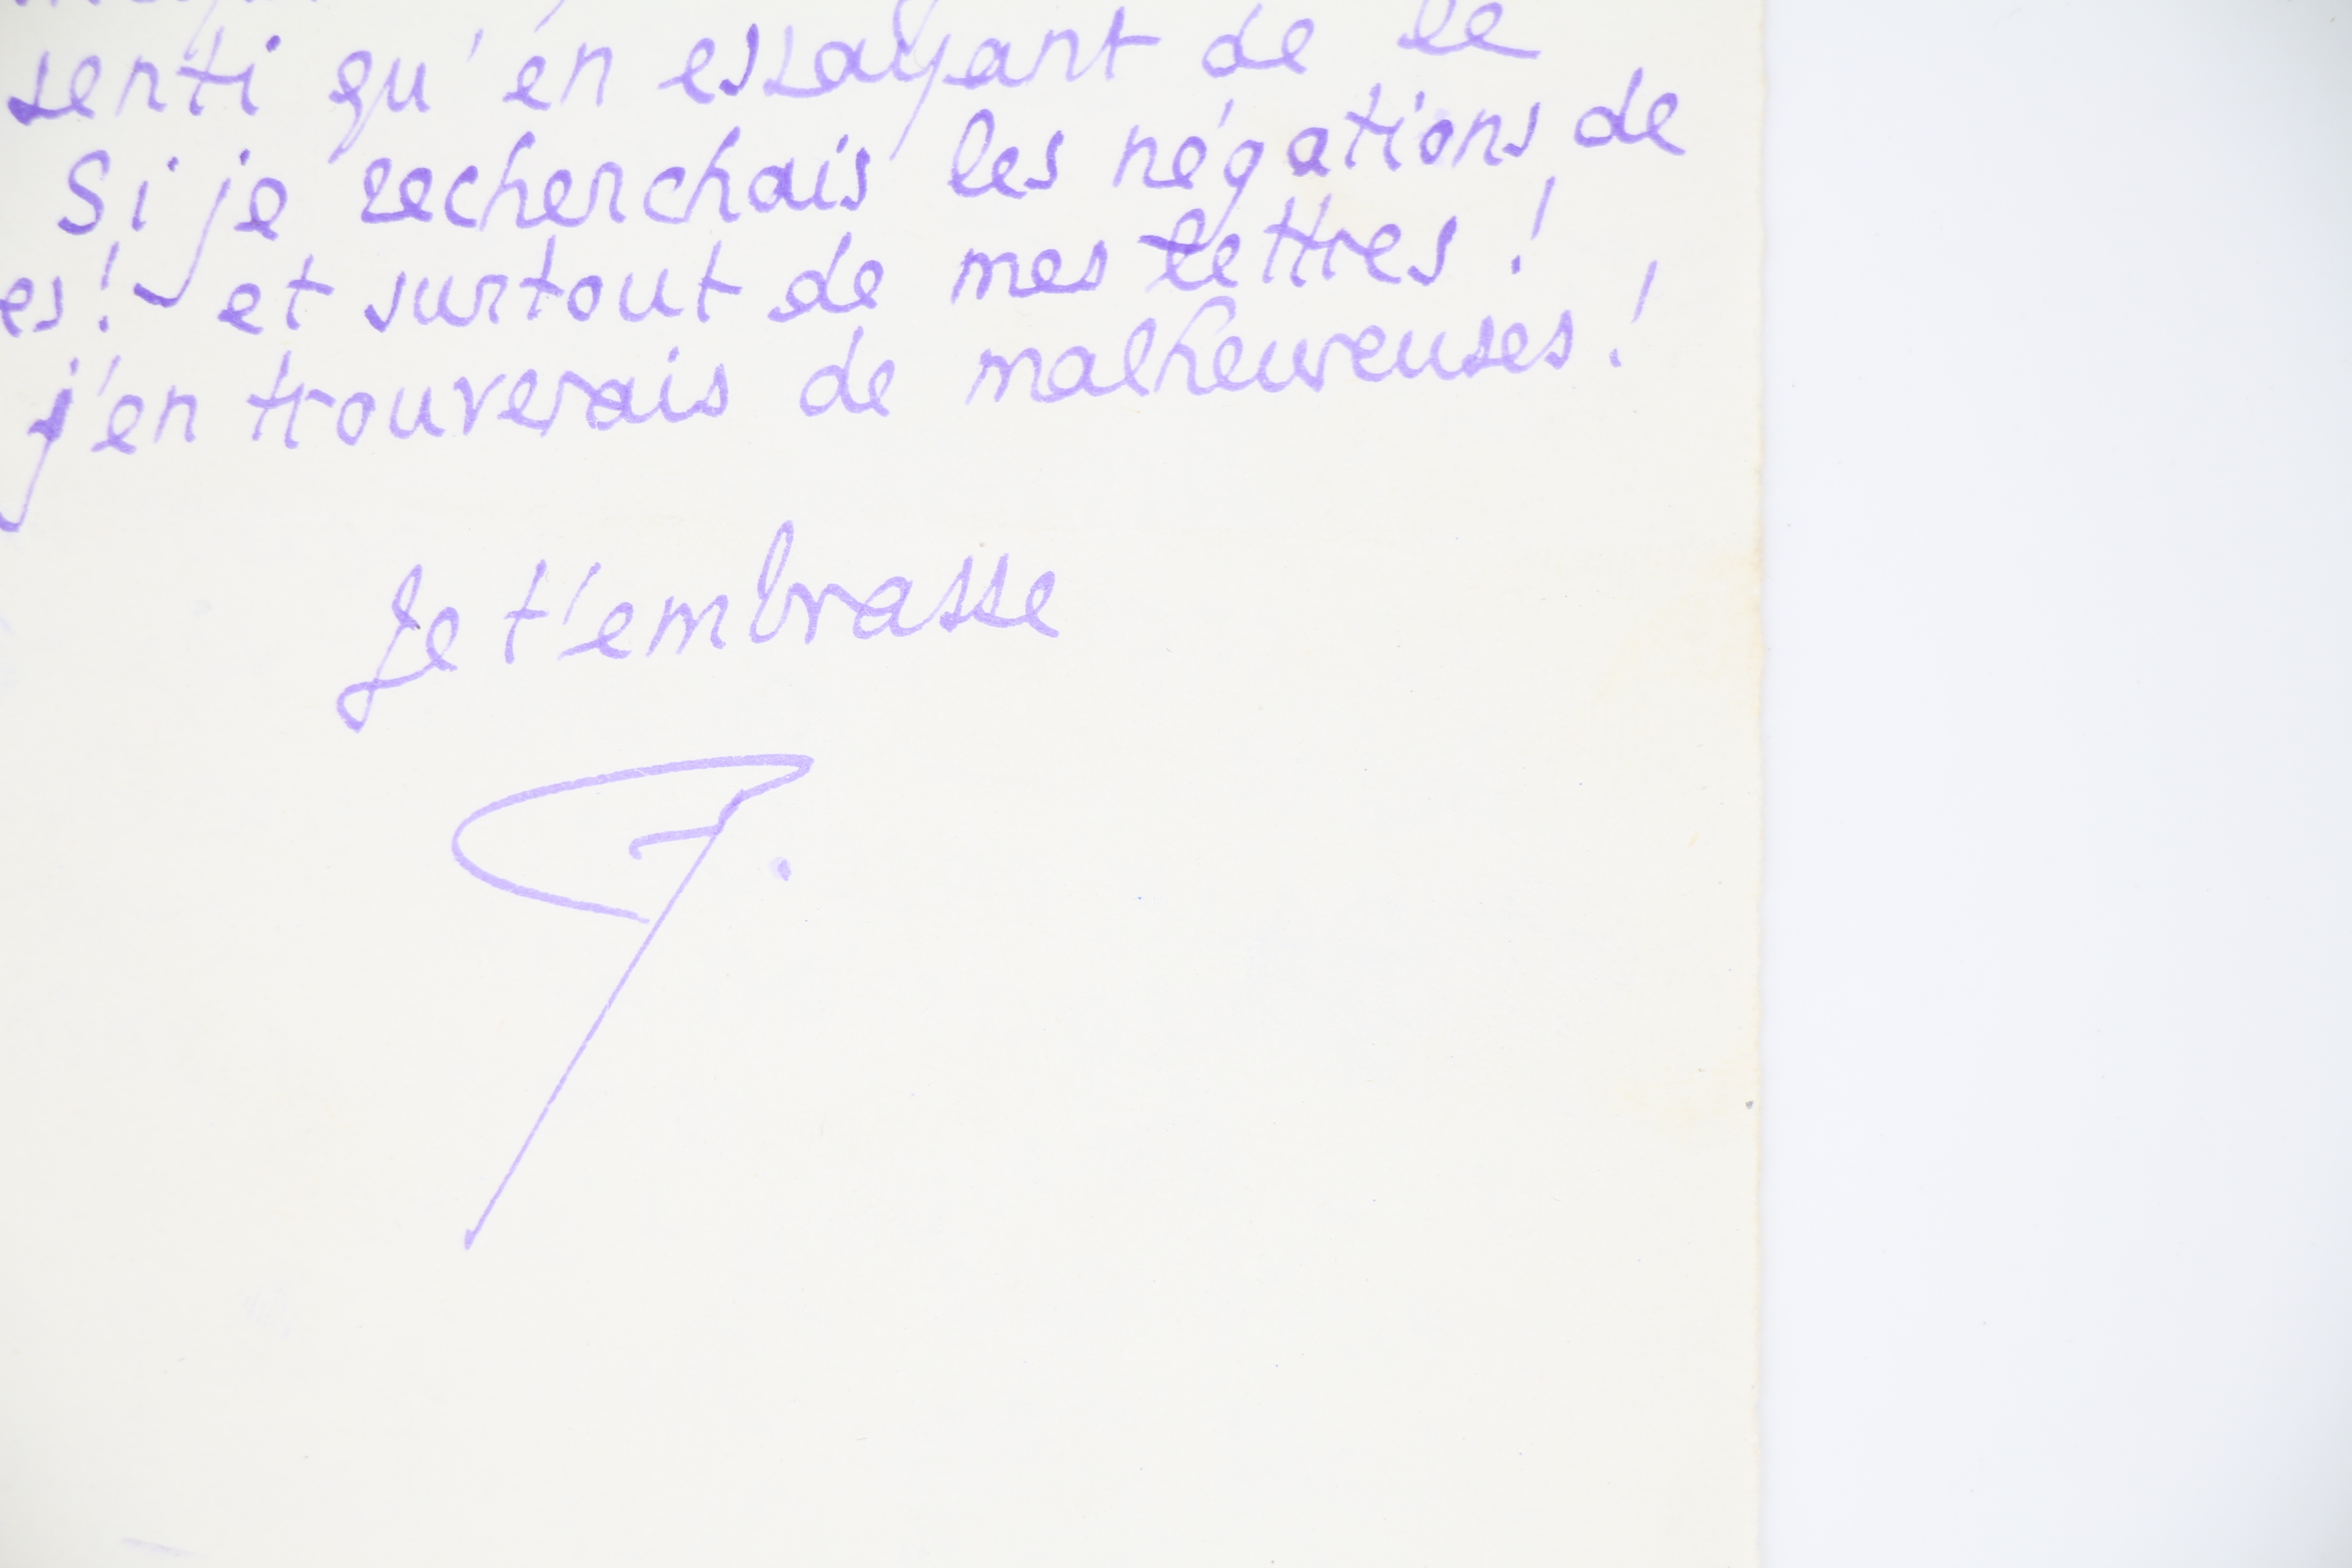 senti qu'en essayant de le
Si je recherchais les négations de
es! et surtout de mes lettres!
j'en trouverais de malheureuses!
Je t'embrasse